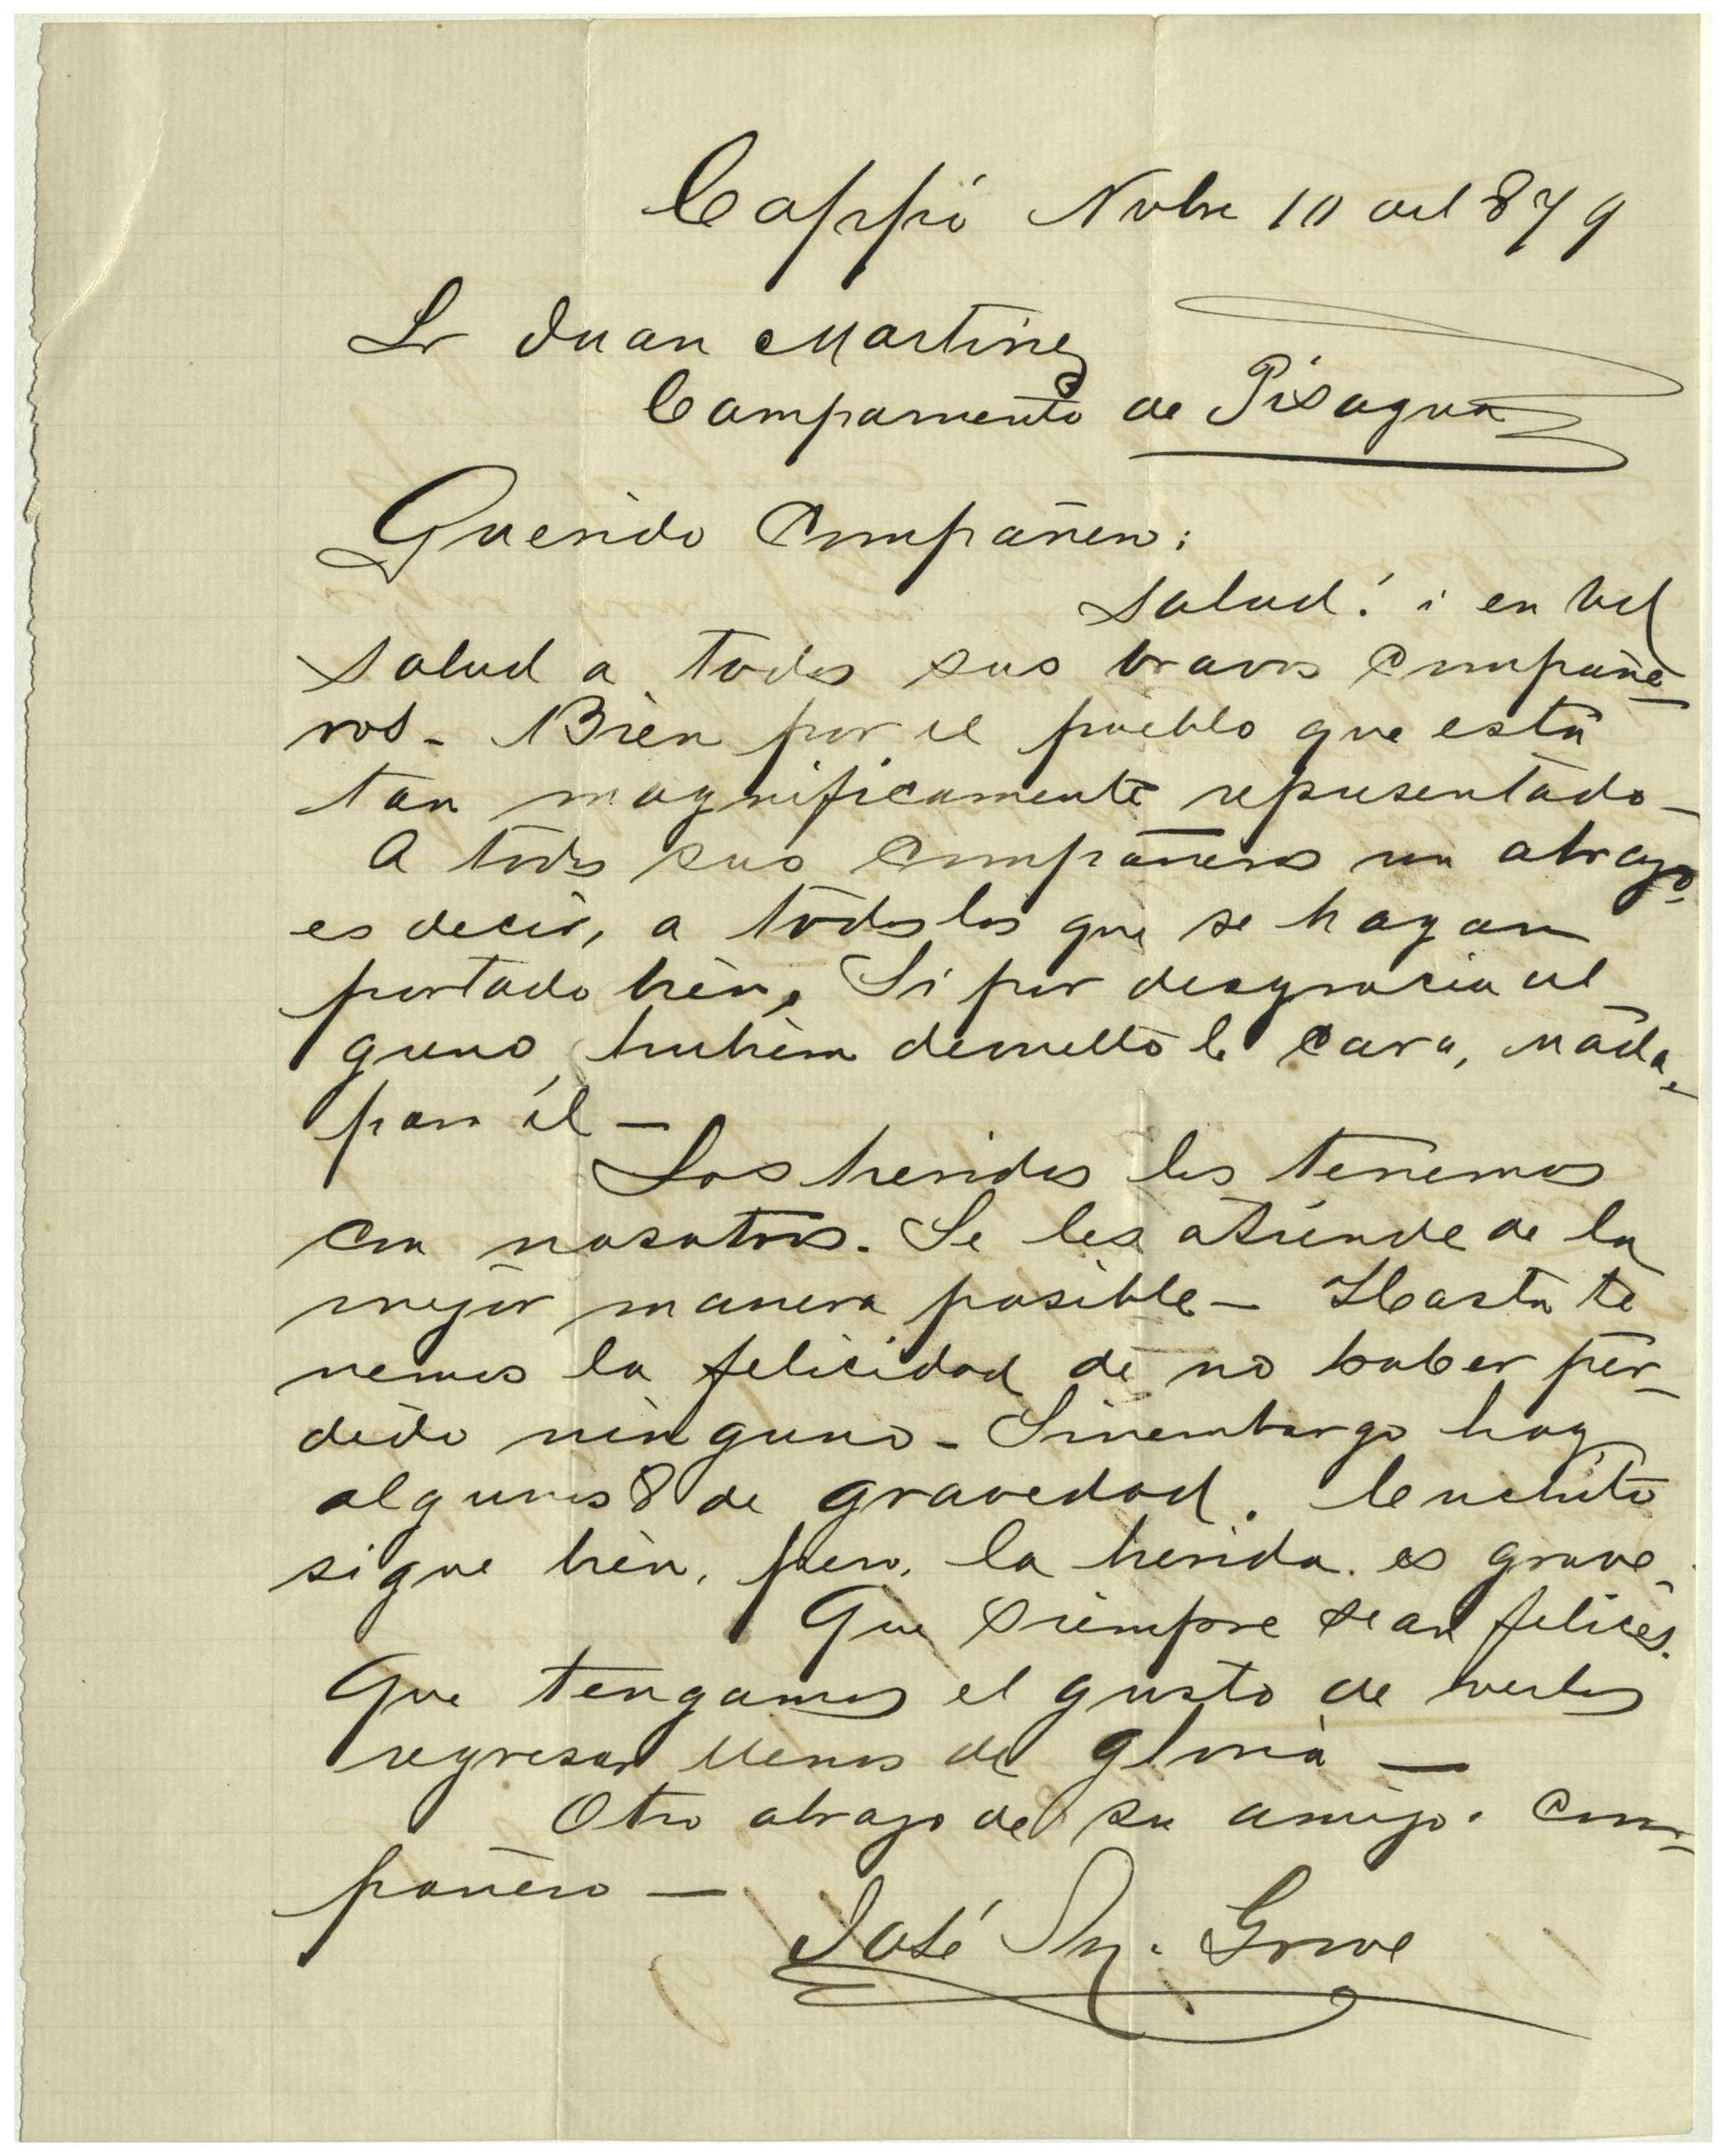 Coppó Nvbre 10 del 879
Sr Juan Martinez
Campamento de Pisagua
Querido Compañero:
Salud! i en Ud
salud a todos sus bravos compañe-
ros - Bien por el pueblo que está
tan magnificamente representado -
A todos sus compañeros un abrazo,
es decir, a todos los que se hayan
portado bien. Si por desgracia al
guno hubiera devuelto la cara, nada
para él -
Los heridos los tenemos
con nosotros. Se les atiende de la
mejor manera posible - Hasta te
nemos la felicidad de no haber per-
dido ninguno - Sinembargo hay
algunos 8 de gravedad.
sigue bien, pero, la herida es grave.
Que siempre sean felices.
Que tengamos el gusto de verlos
regresar llenos de gloria -
Otro abrazo de su amigo i com-
pañero -
José M. Grove